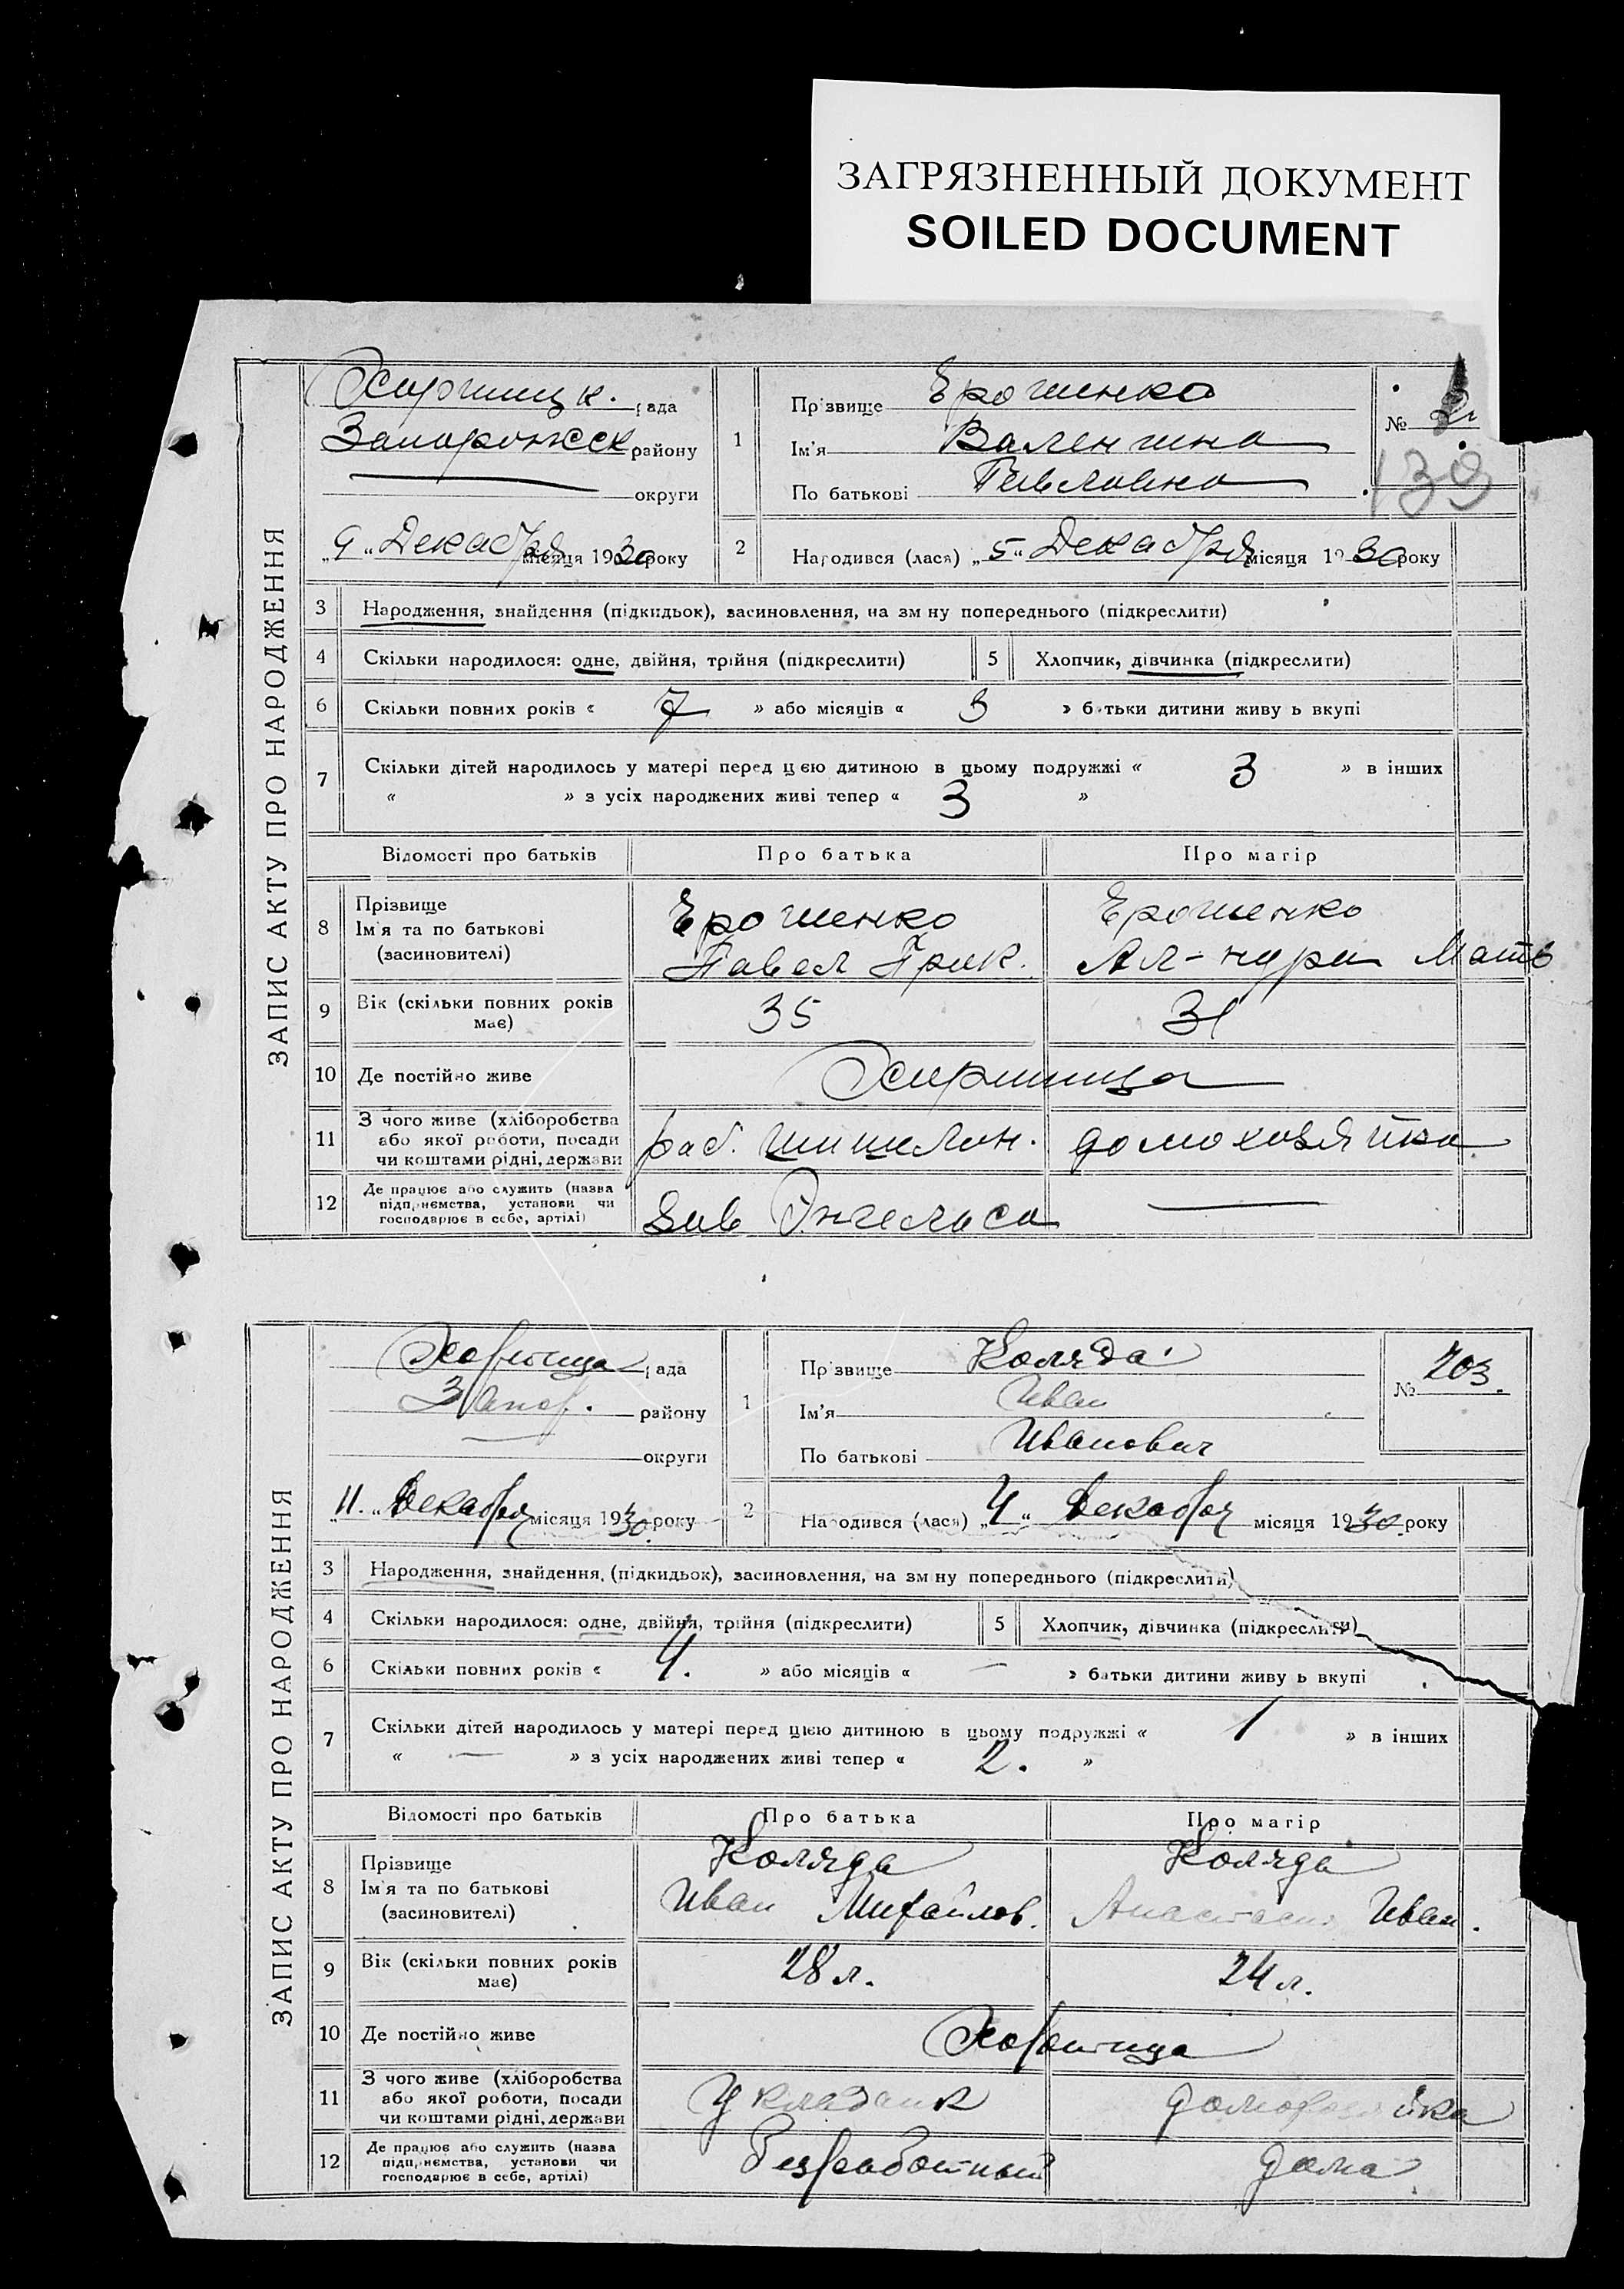 ЗАГРЯЗНЕННЫЙ ДОКУМЕНТ
SOILED DOCUMENT
ЗАПИС АКТУ ПРО НАРОДЖЕННЯ
Хортицк. рада
Запорожск району
округи
„9“ Декабря місяця 1930 року
1
Прізвище Ерошенко
Ім'я Валентина
По батькові Павловна
№
139
2
Народився (лася) „5“ Декабря місяця 1930 року
3 Народження, знайдення (підкидьок), засиновлення, на зміну попереднього (підкреслити)
4 Скільки народилося: одне, двійня, трійня (підкреслити)
5 Хлопчик, дівчинка (підкреслити)
6 Скільки повних років « 7 » або місяців « 3 » батьки дитини живуть вкупі
7 Скільки дітей народилось у матері перед цією дитиною в цьому подружжі « 3 » в інших
« » з усіх народжених живі тепер « 3 »
Відомості про батьків Про батька Про матір
8 Прізвище
Ім'я та по батькові
(засиновителі)
Ерошенко
Павел
Ерошенко
Ал-ндра Матв
9 Вік (скільки повних років
має)
35 31
10 Де постійно живе Хортица
11 З чого живе (хліборобства
або якої роботи, посади
чи коштами рідні, держави
раб. домохозяйка
12 Де працює або служить (назва
підприємства, установи чи
господарює в себе, артілі)
Зав Энгельса —
ЗАПИС АКТУ ПРО НАРОДЖЕННЯ
Хортица рада
Запор. району
округи
„11.“ Декабря місяця 1930. року
1
Прізвище Коляда
Ім'я Иван
По батькові Иванович
№ 203.
2
Народився (лася) „4“ Декабря місяця 1930. року
3 Народження, знайдення, (підкидьок), засиновлення, на зміну попереднього (підкреслити)
4 Скільки народилося: одне, двійня, трійня (підкреслити)
5 Хлопчик, дівчинка (підкреслити)
6 Скільки повних років « 4. » або місяців « — » батьки дитини живуть вкупі
7 Скільки дітей народилось у матері перед цією дитиною в цьому подружжі « 1 » в інших
« — » з усіх народжених живі тепер « 2. »
Відомості про батьків Про батька Про матір
8 Прізвище
Ім'я та по батькові
(засиновителі)
Коляда
Иван Михайлов.
Коляда
Анастасия Иван.
9 Вік (скільки повних років
має)
28 л. 24 л.
10 Де постійно живе Хортица
11 З чого живе (хліборобства
або якої роботи, посади
чи коштами рідні, держави
Укладчик домохозяйка
12 Де працює або служить (назва
підприємства, установи чи
господарює в себе, артілі)
Безработный дома